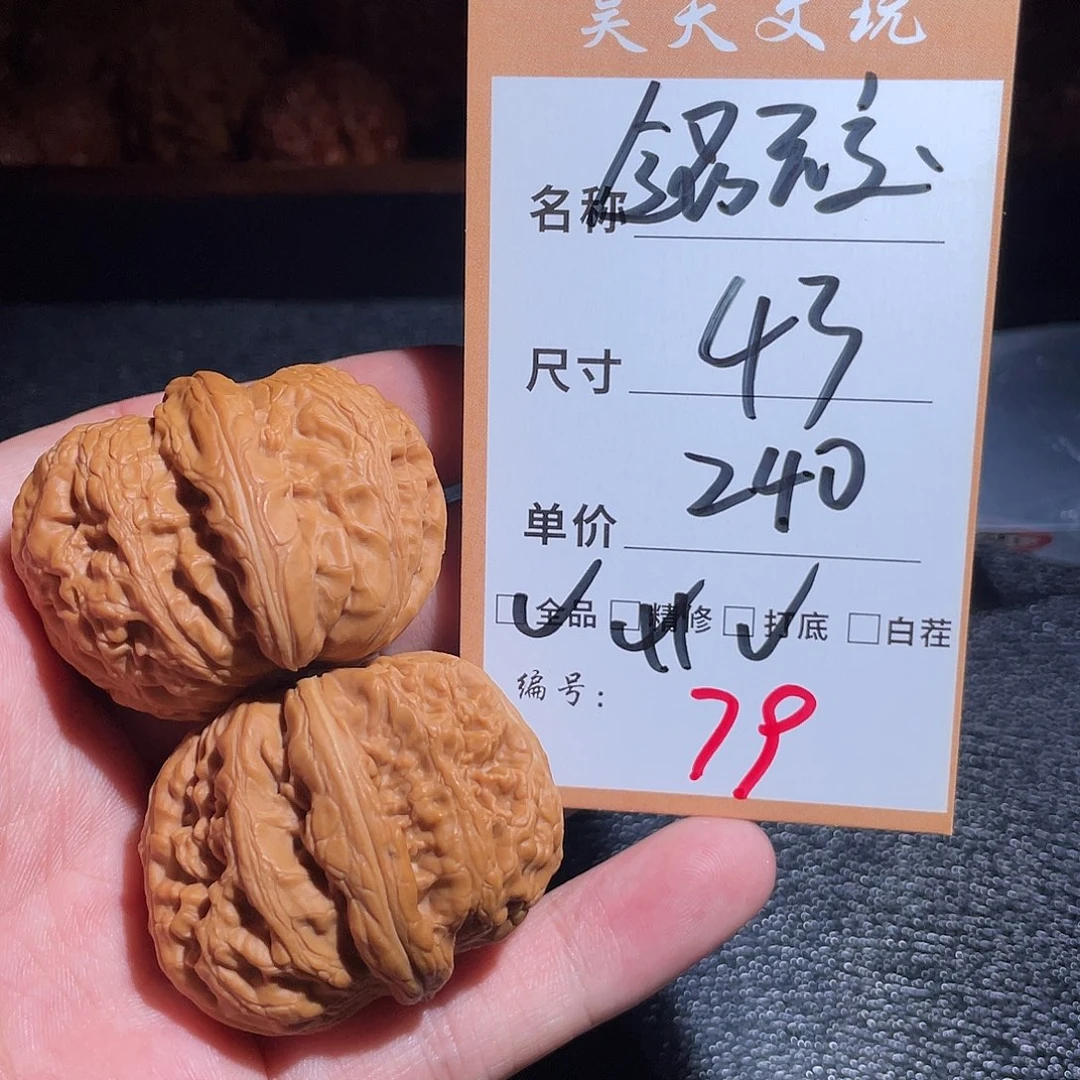 昊天文玩
名称
尺寸 43
单价 240
□全品 □精修 □打底 □白茬
编号: 79